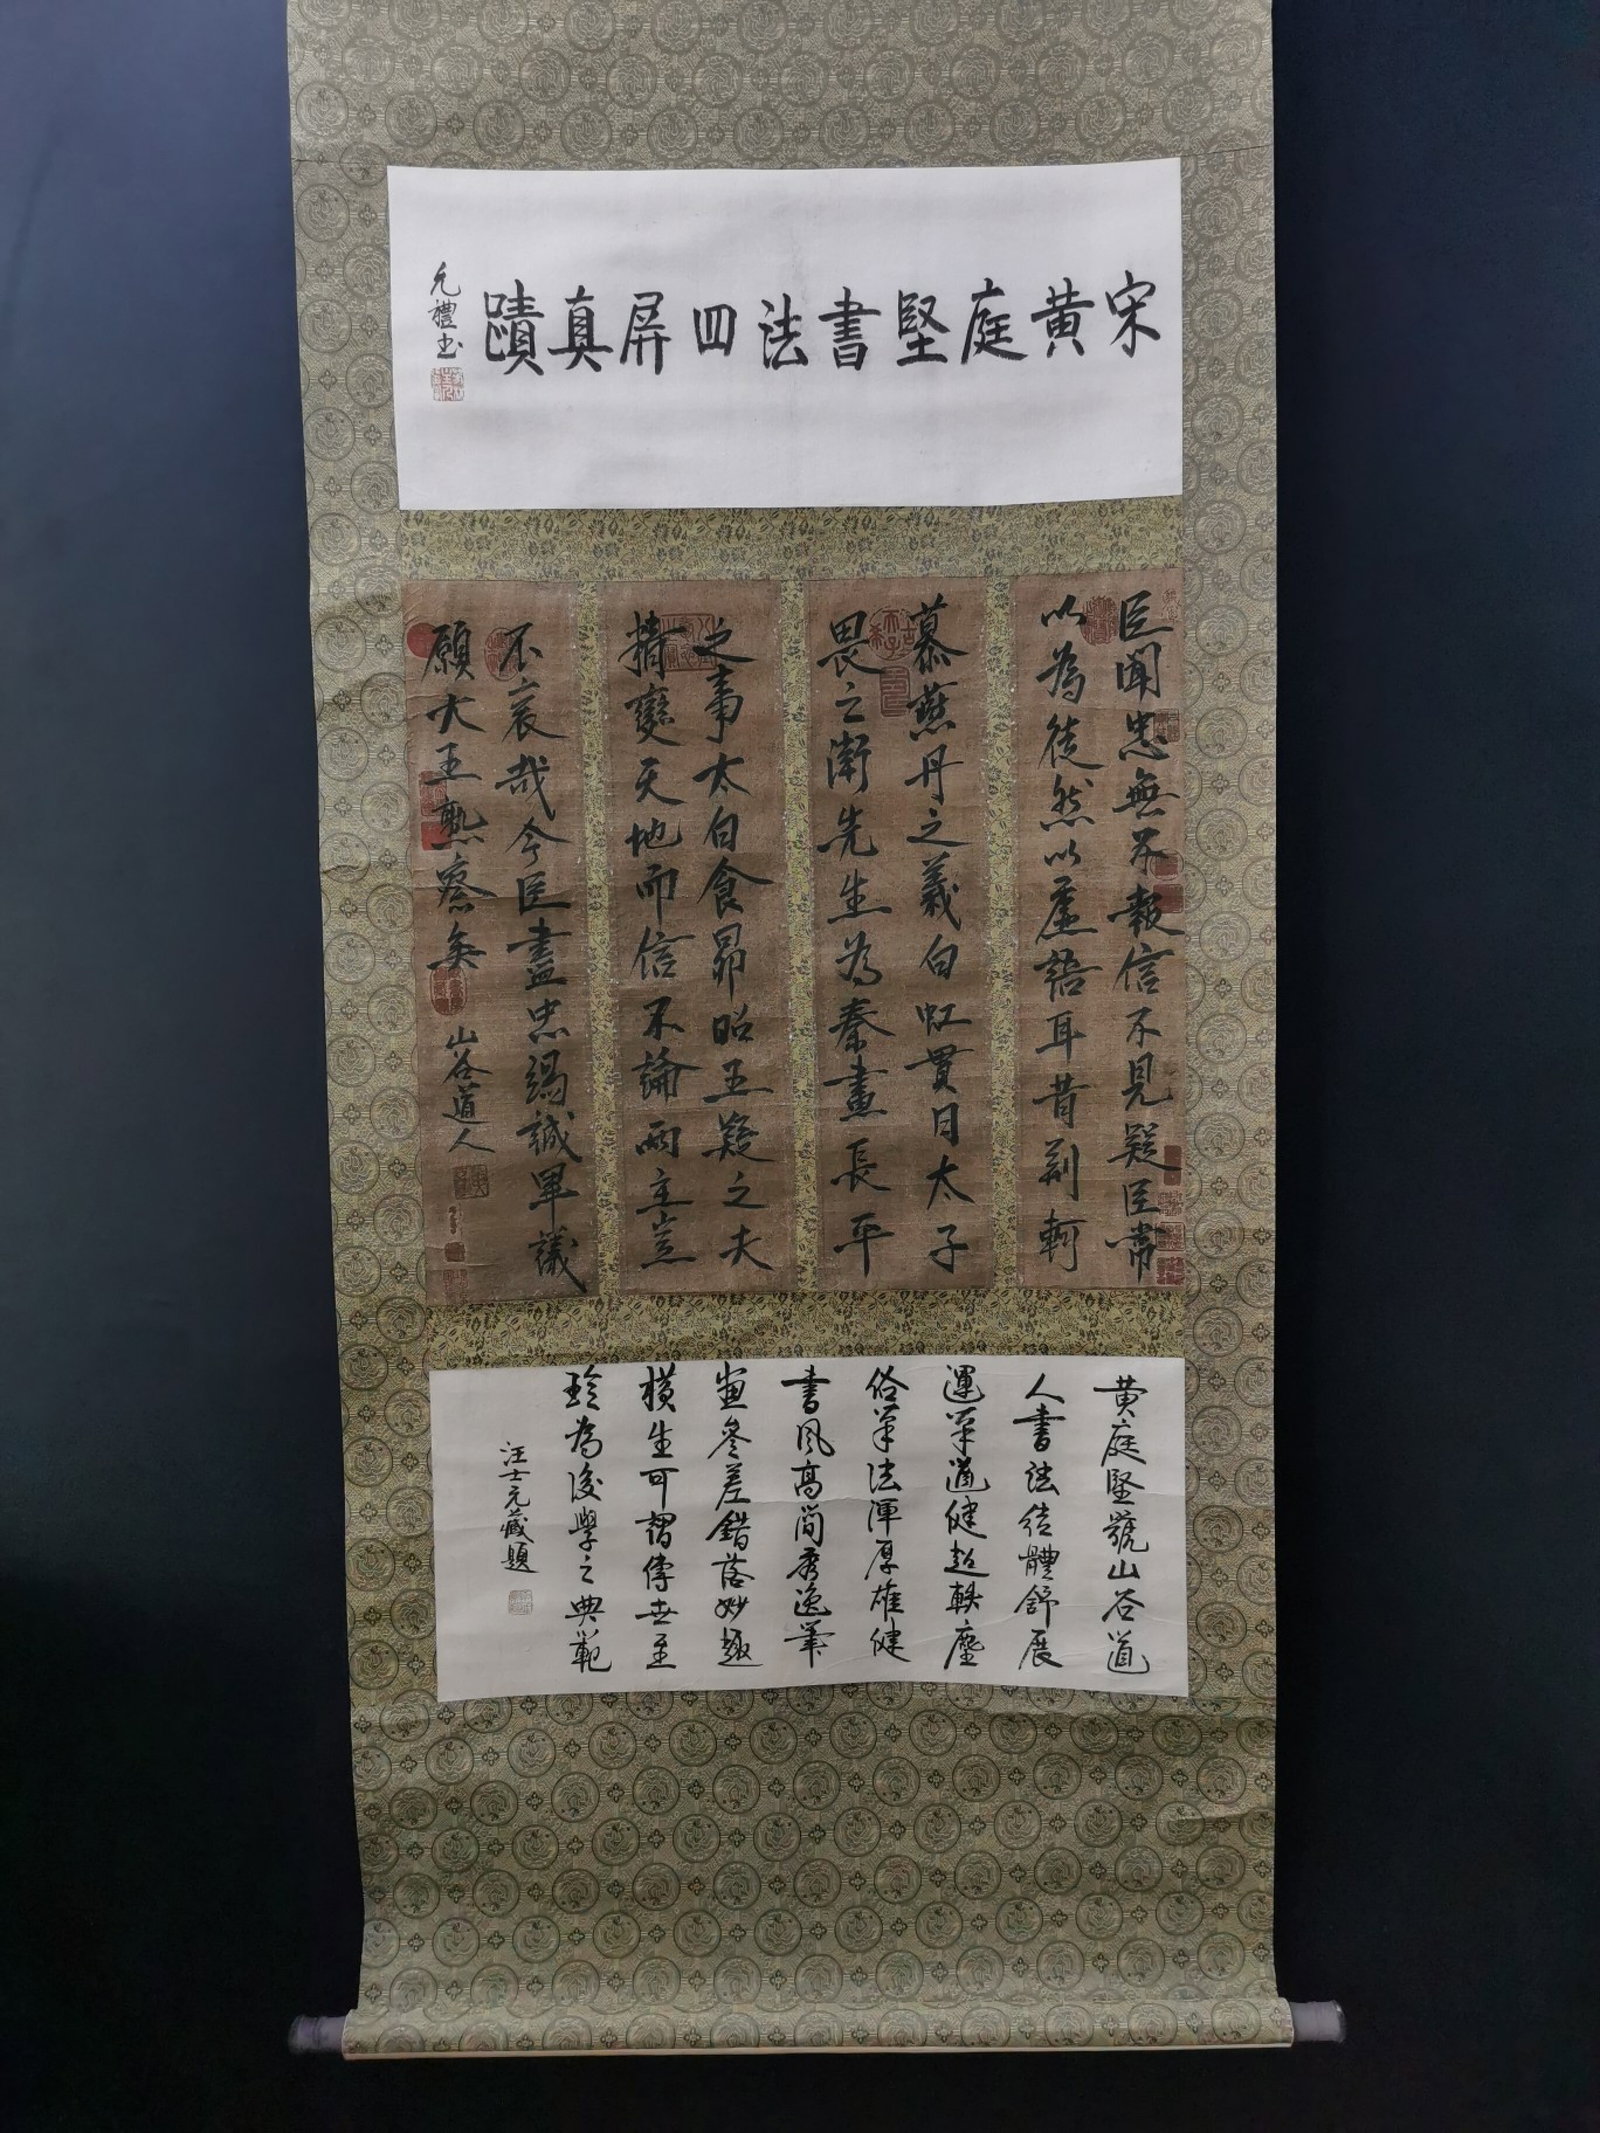 宋黄庭堅書法四屏真蹟
元禮書
臣聞忠無不報信不見疑臣常
以為徒然以虛語耳昔荆軻
慕燕丹之義白虹貫日太子
畏之衛先生為秦畫長平
之事太白食昴昭王疑之夫
精變天地而信不諭兩主豈
不哀哉今臣盡忠竭誠畢議
願大王熟察矣
山谷道人
黄庭堅號山谷道
人書法結體舒展
運筆遒健超軼塵
俗筆法渾厚雄健
書風高簡秀逸筆
畫參差錯落妙趣
橫生可謂傳世至
珍為後學之典範
汪士元藏題